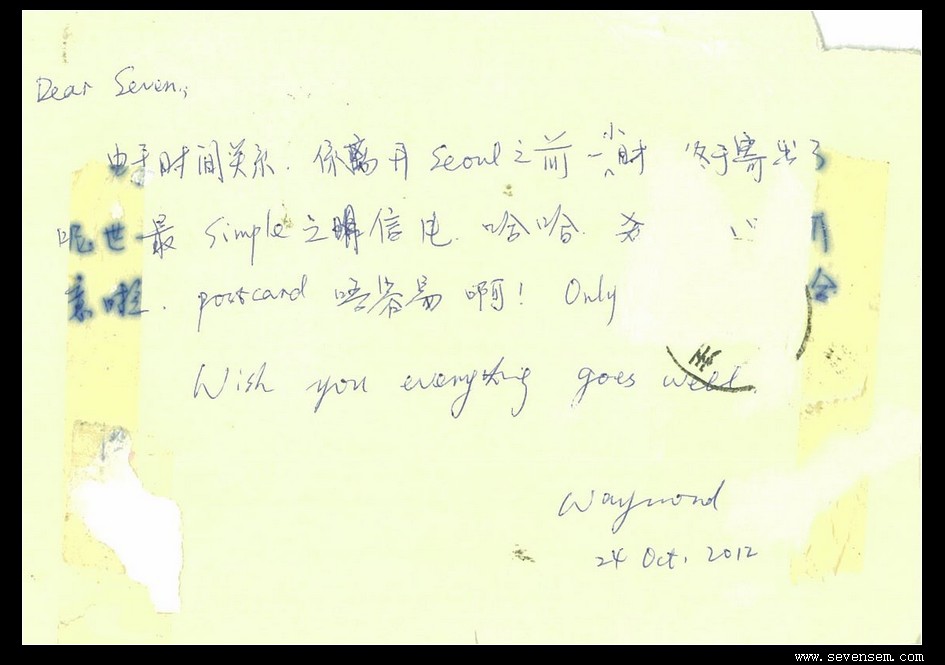 Dear Seven,
由于时间关系.係离开Seoul之前一小时 终于寄出了
呢世最Simple之明信 哈哈.
意啦.postcard唔容易啊!Only
Wish you everything goes well.
Waymond
24 Oct, 2012
www.sevensem.com